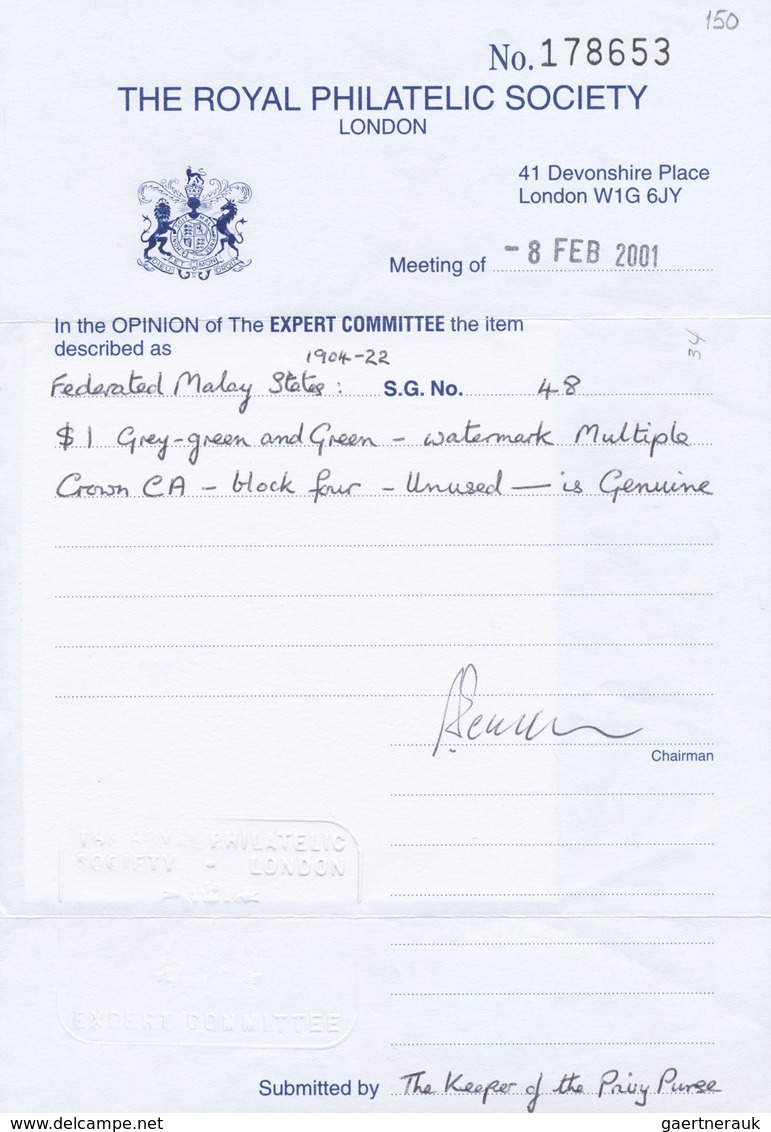 150
No. 178653
THE ROYAL PHILATELIC SOCIETY
LONDON
41 Devonshire Place
London W1G 6JY
Meeting of - 8 FEB 2001
In the OPINION of The EXPERT COMMITTEE the item
described as
34
1904-22
Federated Malay States: S.G. No. 48
$1 Grey-green and Green - watermark Multiple
Crown CA - block four - Unused — is Genuine
Chairman
THE ROYAL PHILATELIC
SOCIETY - LONDON
EXPERT COMMITTEE
Submitted by The Keeper of the Privy Purse
www.delcampe.net
gaertnerauk